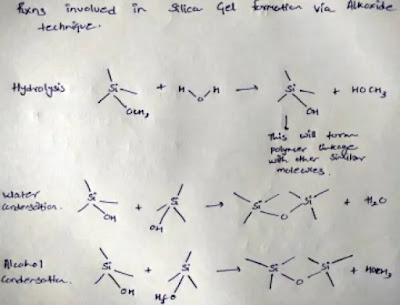 Rxns involved in Silica Gel formation via Alkoxide
technique.
Hydrolysis Si OCH3 + H O H → Si OH + HOCH3
This will form
polymer linkage
with other similar
molecules.
Water
condensation. Si OH + Si OH → Si O Si + H2O
Alcohol
Condensation. Si OH + Si H3CO → Si O Si + HOCH3